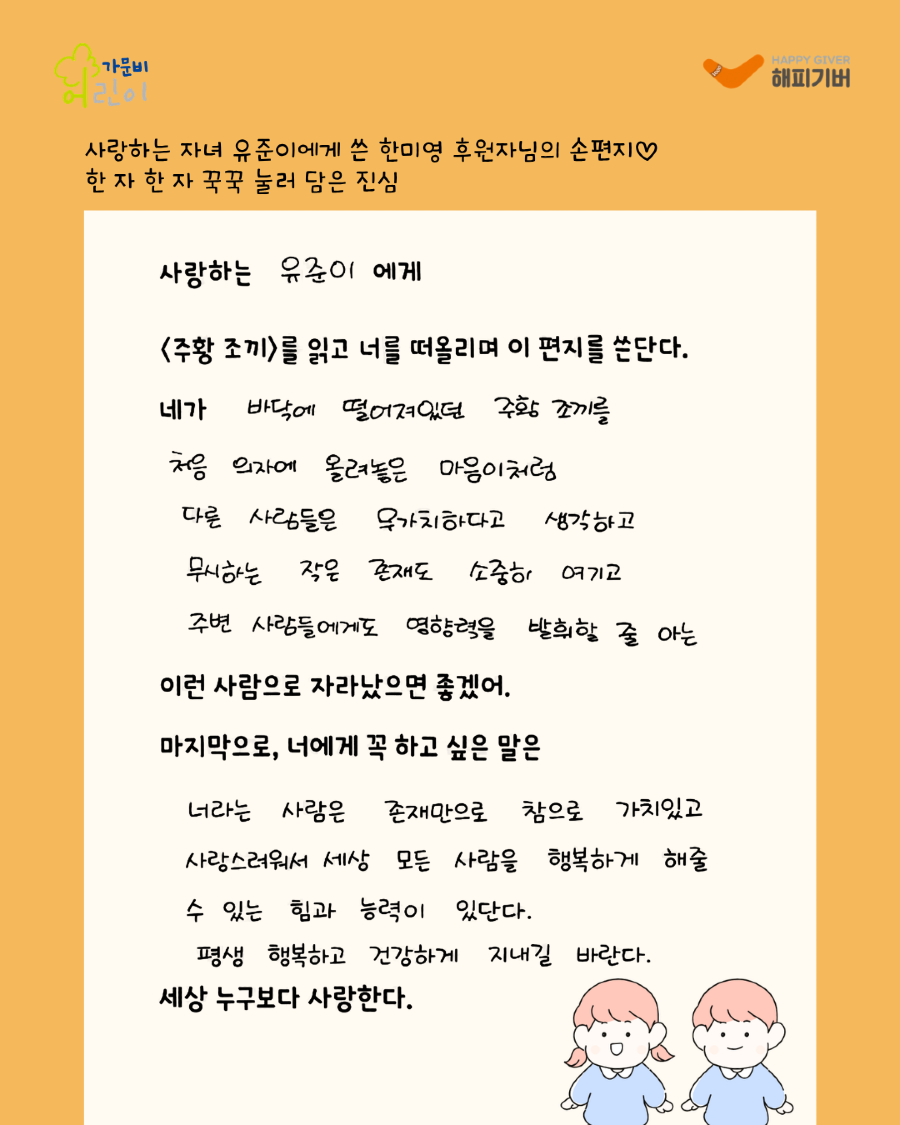 가문비
어린이
HAPPY GIVER
해피기버
사랑하는 자녀 유준이에게 쓴 한미영 후원자님의 손편지♡
한 자 한 자 꾹꾹 눌러 담은 진심
사랑하는 유준이 에게
〈주황 조끼〉를 읽고 너를 떠올리며 이 편지를 쓴단다.
네가 바닥에 떨어져있던 주황 조끼를
처음 의자에 올려놓은 마음이처럼
다른 사람들은 무가치하다고 생각하고
무시하는 작은 존재도 소중히 여기고
주변 사람들에게도 영향력을 발휘할 줄 아는
이런 사람으로 자라났으면 좋겠어.
마지막으로, 너에게 꼭 하고 싶은 말은
너라는 사람은 존재만으로 참으로 가치있고
사랑스려워서 세상 모든 사람을 행복하게 해줄
수 있는 힘과 능력이 있단다.
평생 행복하고 건강하게 지내길 바란다.
세상 누구보다 사랑한다.